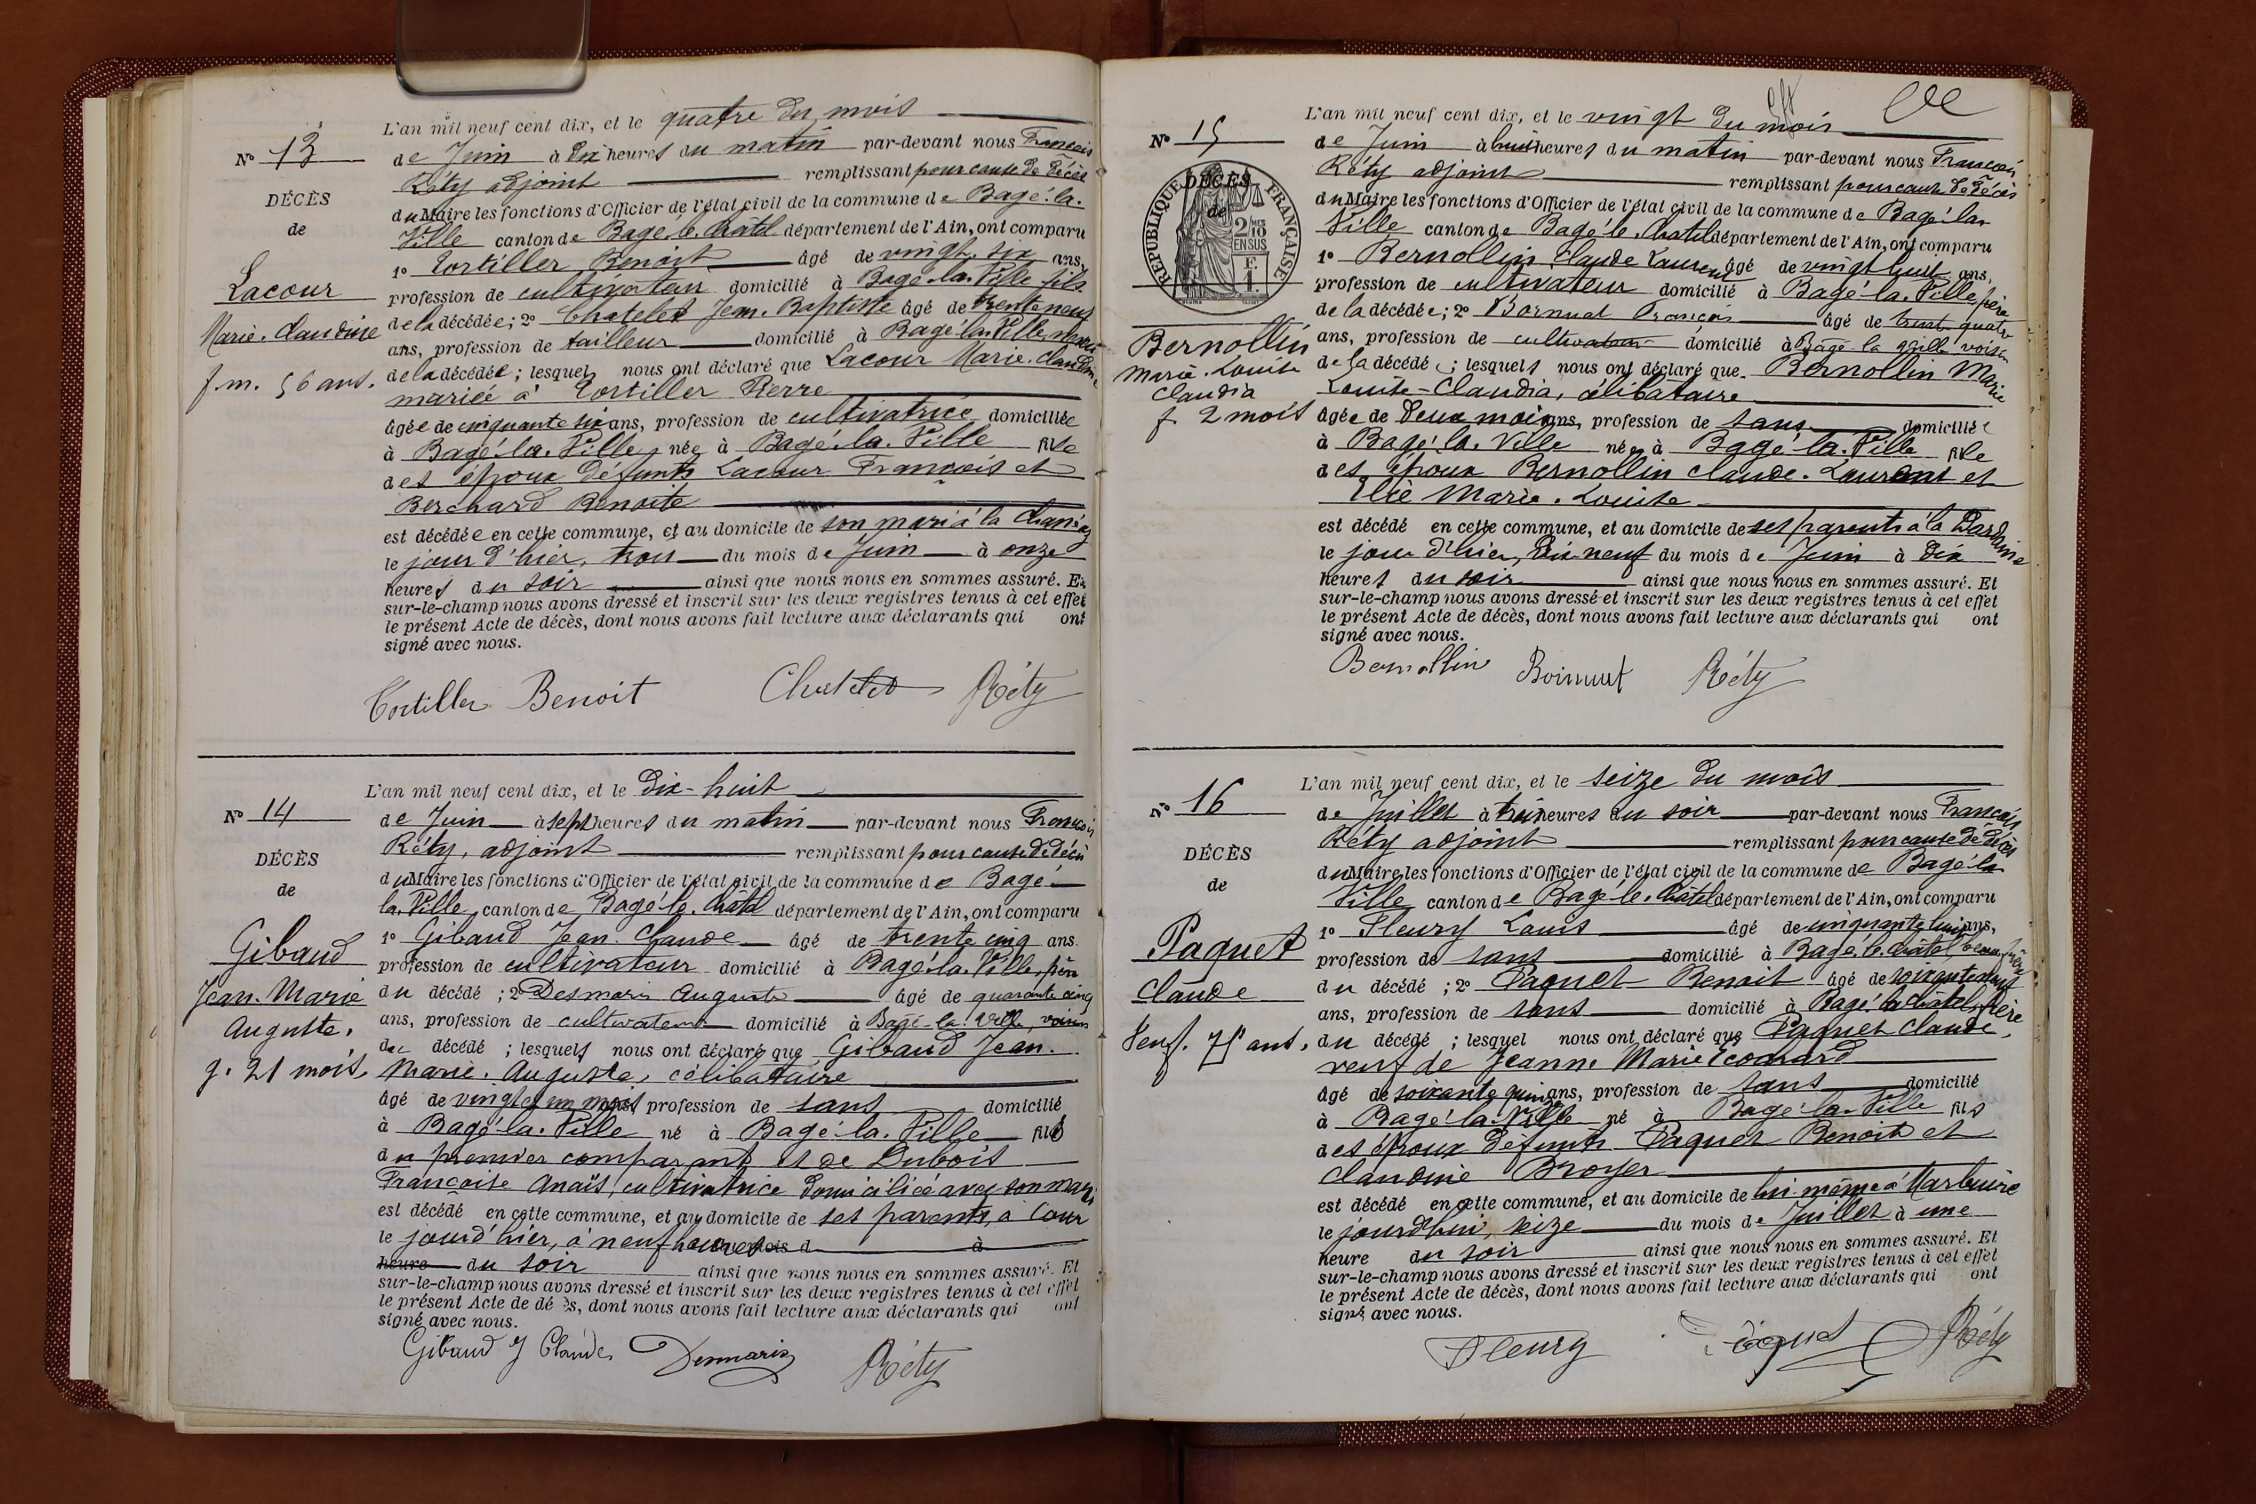 N° 13
DÉCÈS
de
Lacour
Marie. Claudine
f. m. 56 ans.
L'an mil neuf cent dix, et le quatre du mois
de Juin à dix heures du matin par-devant nous François
Réty adjoint remplissant pour cause de décès
du Maire les fonctions d'Officier de l'état civil de la commune de Bagé-la-
Ville canton de Bagé-le-Châtel département de l'Ain, ont comparu
1° Tortiller Benoit âgé de vingt-six ans,
profession de cultivateur domicilié à Bagé-la-Ville fils
de la décédée; 2° Chatelet Jean-Baptiste âgé de trente neuf
ans, profession de tailleur domicilié à Bagé-la-Ville,
de la décédée; lesquels nous ont déclaré que Lacour Marie-Claudine
mariée à Tortiller Pierre
âgée de cinquante six ans, profession de cultivatrice domiciliée
à Bagé-la-Ville née à Bagé-la-Ville fille
des époux défunts Lacour François et
Berchard Benoite
est décédée en cette commune, et au domicile de son mari à la
le jour d'hier, trois du mois de Juin à onze
heures du soir ainsi que nous nous en sommes assuré. Et
sur-le-champ nous avons dressé et inscrit sur les deux registres tenus à cet effet
le présent Acte de décès, dont nous avons fait lecture aux déclarants qui ont
signé avec nous.
Tortiller Benoit Chatelet Réty
N° 14
DÉCÈS
de
Gibaud
Jean-Marie
Auguste.
g. 21 mois.
L'an mil neuf cent dix, et le dix-huit
de Juin à sept heures du matin par-devant nous François
Réty, adjoint remplissant pour cause de décès
du Maire les fonctions d'Officier de l'état civil de la commune de Bagé-
la-Ville canton de Bagé-le-Châtel département de l'Ain, ont comparu
1° Gibaud Jean-Claude âgé de trente cinq ans.
profession de cultivateur domicilié à Bagé-la-Ville, père
du décédé; 2° Desmaris Auguste âgé de quarante cinq
ans, profession de cultivateur domicilié à Bagé-la-Ville, voisin
du décédé; lesquels nous ont déclaré que Gibaud Jean-
Marie-Auguste, célibataire
âgé de vingt et un mois profession de sans domicilié
à Bagé-la-Ville né à Bagé-la-Ville fils
du premier comparant et de Dubois
Françoise Anaïs, cultivatrice domiciliée avec son mari
est décédé en cette commune, et au domicile de ses parents, à Cour
le jour d'hier, à neuf heures mois d à
heure du soir ainsi que nous nous en sommes assuré. Et
sur-le-champ nous avons dressé et inscrit sur les deux registres tenus à cet effet
le présent Acte de décès, dont nous avons fait lecture aux déclarants qui ont
signé avec nous.
Gibaud J Claude Desmaris Réty
N° 15
RÉPUBLIQUE FRANÇAISE
DÉCÈS
de
2/10 EN SUS
Bernollin
Marie-Louise
Claudia
f. 2 mois
L'an mil neuf cent dix, et le vingt du mois
de Juin à huit heures du matin par-devant nous François
Réty adjoint remplissant pour cause de décès
du Maire les fonctions d'Officier de l'état civil de la commune de Bagé-la-
Ville canton de Bagé-le-Châtel département de l'Ain, ont comparu
1° Bernollin Claude Laurent âgé de vingt huit ans,
profession de cultivateur domicilié à Bagé-la-Ville, père
de la décédée; 2° François âgé de trente quatre
ans, profession de cultivateur domicilié à Bagé-la-Ville voisin
de la décédé; lesquels nous ont déclaré que Bernollin Marie
Louise-Claudia, célibataire
âgée de deux mois ans, profession de sans domiciliée
à Bagé-la-Ville née à Bagé-la-Ville fille
des époux Bernollin Claude-Laurent et
Elie Marie-Louise
est décédé en cette commune, et au domicile de ses parents à la
le jour d'hier, dix-neuf du mois de Juin à dix
heures du soir ainsi que nous nous en sommes assuré. Et
sur-le-champ nous avons dressé et inscrit sur les deux registres tenus à cet effet
le présent Acte de décès, dont nous avons fait lecture aux déclarants qui ont
signé avec nous.
Bernollin Réty
N° 16
DÉCÈS
de
Paquet
Claude
veuf. 75 ans.
L'an mil neuf cent dix, et le seize du mois
de Juillet à trois heures du soir par-devant nous François
Réty adjoint remplissant pour cause de décès
du Maire les fonctions d'Officier de l'état civil de la commune de Bagé-la-
Ville canton de Bagé-le-Châtel département de l'Ain, ont comparu
1° Fleury Louis âgé de cinquante huit ans,
profession de sans domicilié à Bagé-le-Châtel, beau-frère
du décédé; 2° Paquet Benoit âgé de soixante neuf
ans, profession de sans domicilié à Bagé-le-Châtel, frère
du décédé; lesquel nous ont déclaré que Paquet Claude,
veuf de Jeanne Marie Ecochard
âgé de soixante quinze ans, profession de sans domicilié
à Bagé-la-Ville né à Bagé-la-Ville fils
des époux défunts Paquet Benoit et
Claudine Broyer
est décédé en cette commune, et au domicile de lui-même à Marbuire
le jourd'hui, seize du mois de Juillet à une
heure du soir ainsi que nous nous en sommes assuré. Et
sur-le-champ nous avons dressé et inscrit sur les deux registres tenus à cet effet
le présent Acte de décès, dont nous avons fait lecture aux déclarants qui ont
signé avec nous.
Fleury Paquet Réty